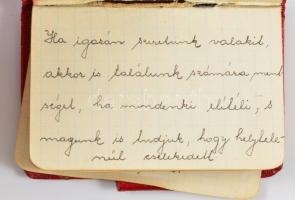 Ha igazán szeretünk valakit,
akkor is találunk számára ment
séget, ha mindenki elítéli, s
magunk is tudjuk, hogy helytele-
nül cselekedett